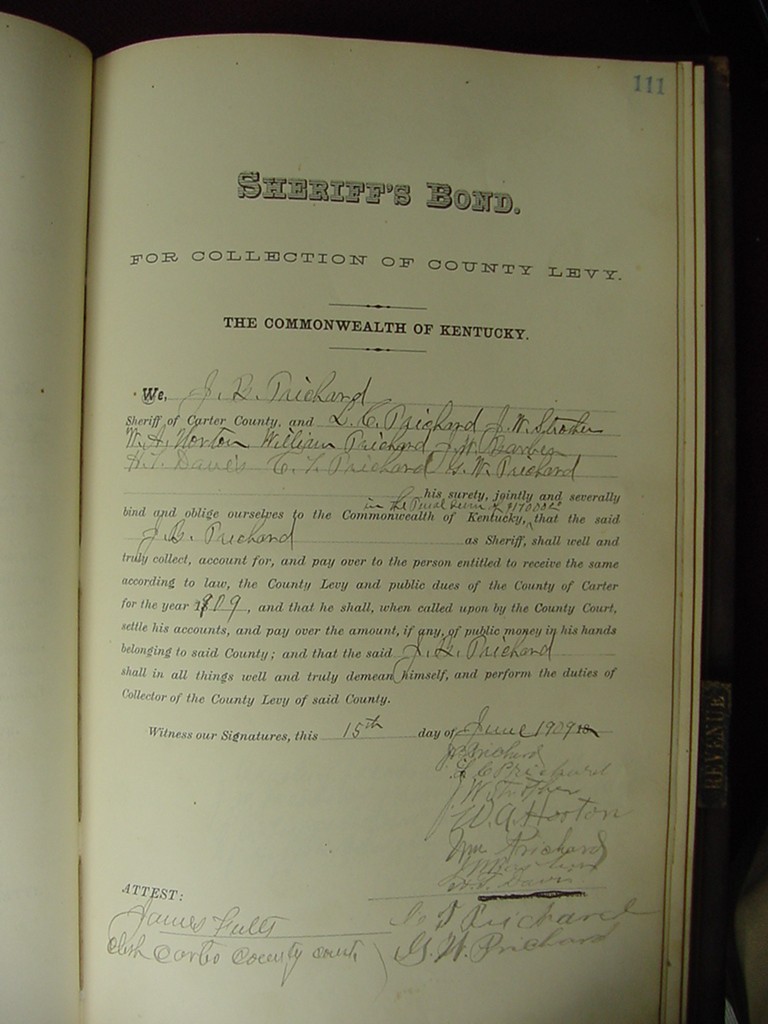 111
SHERIFF'S BOND.
FOR COLLECTION OF COUNTY LEVY.
THE COMMONWEALTH OF KENTUCKY.
We, J. B. Prichard
Sheriff of Carter County, and L. C. Prichard J. W. Strother
W. A. Horton William Prichard J. W. Barber
H. T. Davis C. T. Prichard G. W. Prichard
his surety, jointly and severally
in the Penal sum of $17000.00
bind and oblige ourselves to the Commonwealth of Kentucky, that the said
J. B. Prichard as Sheriff, shall well and
truly collect, account for, and pay over to the person entitled to receive the same
according to law, the County Levy and public dues of the County of Carter
for the year 1909, and that he shall, when called upon by the County Court,
settle his accounts, and pay over the amount, if any, of public money in his hands
belonging to said County; and that the said J. B. Prichard
shall in all things well and truly demean himself, and perform the duties of
Collector of the County Levy of said County.
Witness our Signatures, this 15th day of June 1909 18
J B Prichard
L C Prichard
J. W. Strother
W. A. Horton
Wm Prichard
H. T. Davis
ATTEST:
James Fults
Clerk Carter County Court
C T Prichard
G. W. Prichard
REVENUE